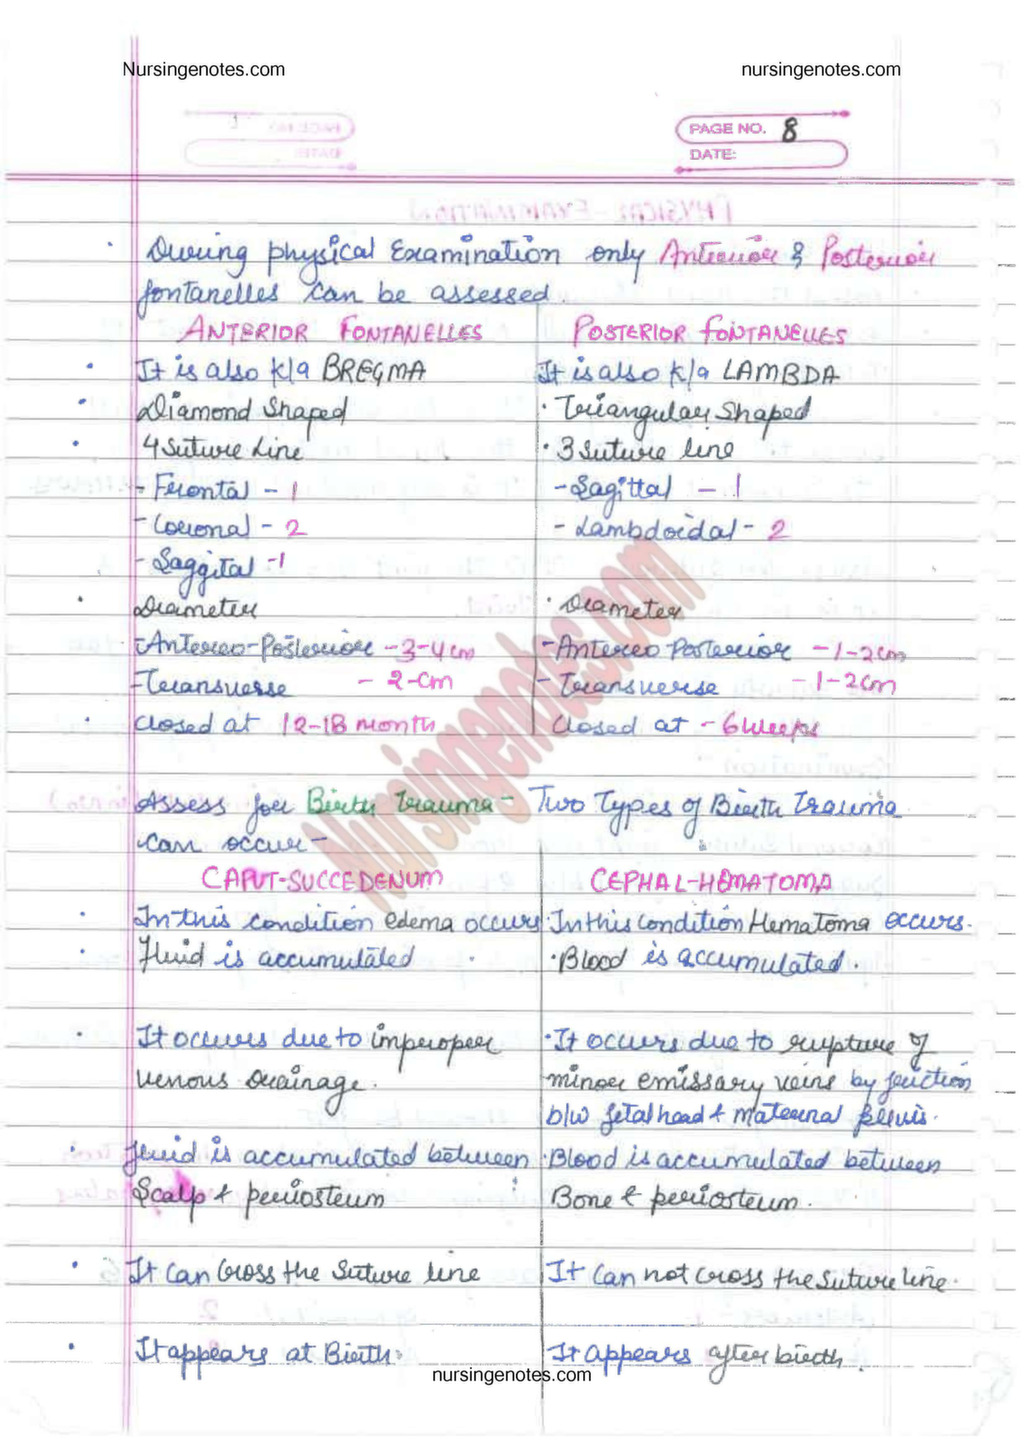 Nursingenotes.com nursingenotes.com
PAGE NO. 8
DATE:
During physical Examination only Anterior & Posterior
fontanelles can be assessed.
ANTERIOR FONTANELLES POSTERIOR FONTANELLES
• It is also k/a BREGMA It is also k/a LAMBDA
• Diamond Shaped • Triangular Shaped
• 4 Suture Line • 3 Suture line
- Frontal - 1 - Sagittal - 1
- Coronal - 2 - Lambdoidal - 2
- Saggital - 1
• Diameter • Diameter
- Antereo-Posterior - 3-4 cm - Antereo Posterior - 1-2cm
- Transverse - 2-cm - Transverse - 1-2cm
• Closed at 12-18 month Closed at - 6 weeks
Nursingenotes.com
Assess for Birth trauma - Two Types of Birth Trauma
can occur -
CAPUT-SUCCEDENUM CEPHAL-HEMATOMA
• In this condition edema occurs • In this condition Hematoma occurs.
• Fluid is accumulated • Blood is accumulated.
• It occurs due to improper • It occurs due to rupture of
venous drainage. minor emissary veins by friction
b/w fetal head & maternal pelvis.
• fluid is accumulated between • Blood is accumulated between
Scalp & periosteum Bone & periosteum.
• It can Cross the Suture line It can not cross the suture line.
• It appears at Birth. It appears after birth.
nursingenotes.com